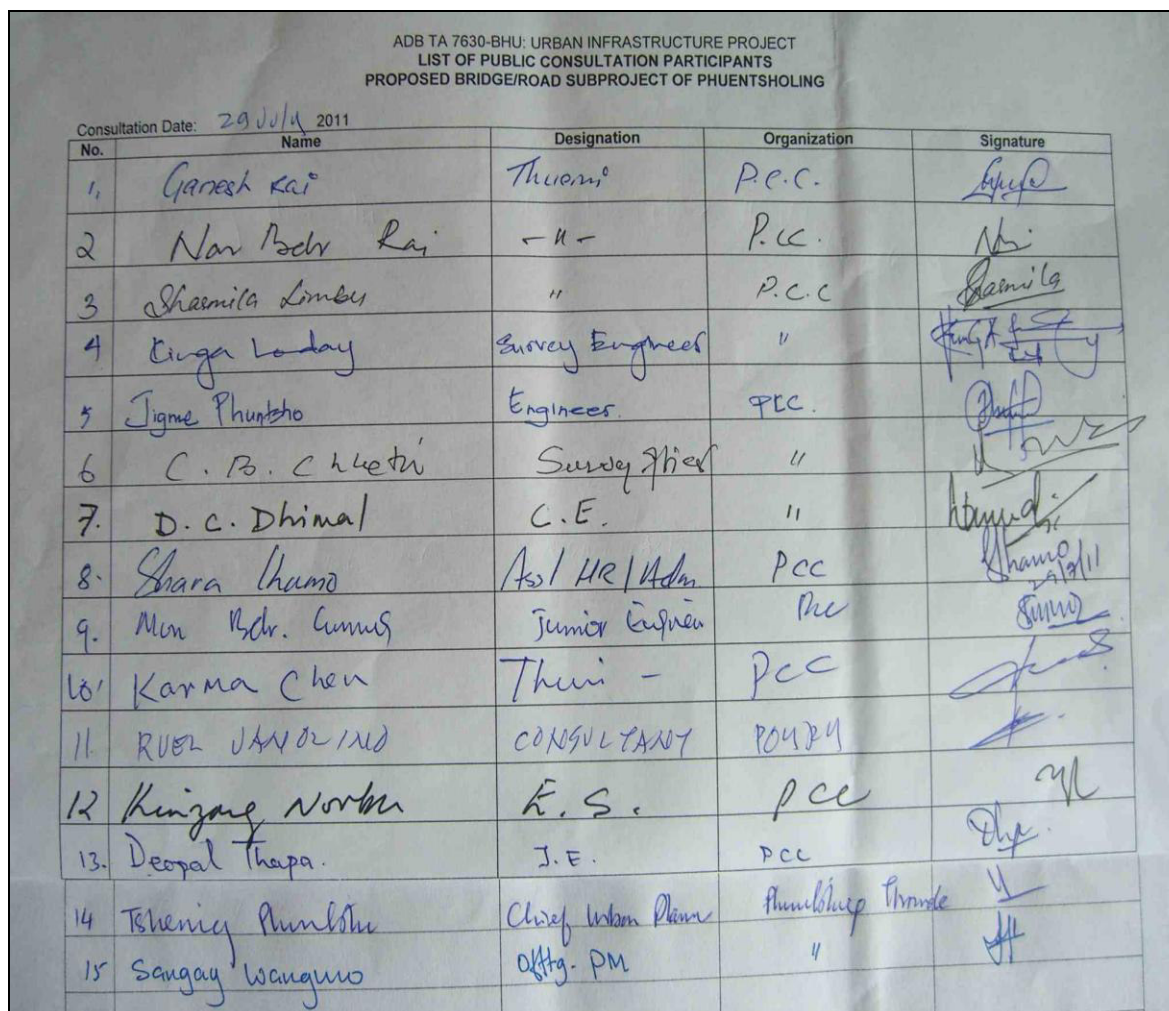 ADB TA 7630-BHU: URBAN INFRASTRUCTURE PROJECT
LIST OF PUBLIC CONSULTATION PARTICIPANTS
PROPOSED BRIDGE/ROAD SUBPROJECT OF PHUENTSHOLING
Consultation Date: 29 July 2011
No. Name Designation Organization Signature
1, Ganesh Rai P.C.C.
2 Nar Bdr Rai -"- P.CC.
3 Sharmila Limbu " P.C.C Sharmila
4 Kinga Loday Survey Engineer "
5 Jigme Phuntsho Engineer. PCC.
6 C. B. Chhetri Survey "
7. D. C. Dhimal C.E. "
8. Lhamo Asst HR/Adm PCC Lhamo 29/7/11
9. Bdr. Junior Engineer PCC
10 Karma Chen PCC
11 RUEL JANOLINO CONSULTANT POYRY
12 Kinzang Norbu E.S. PCC
13. Deopal Thapa. J.E. PCC
14 Chief Urban
15 Sangay Wangmo Offtg. PM "